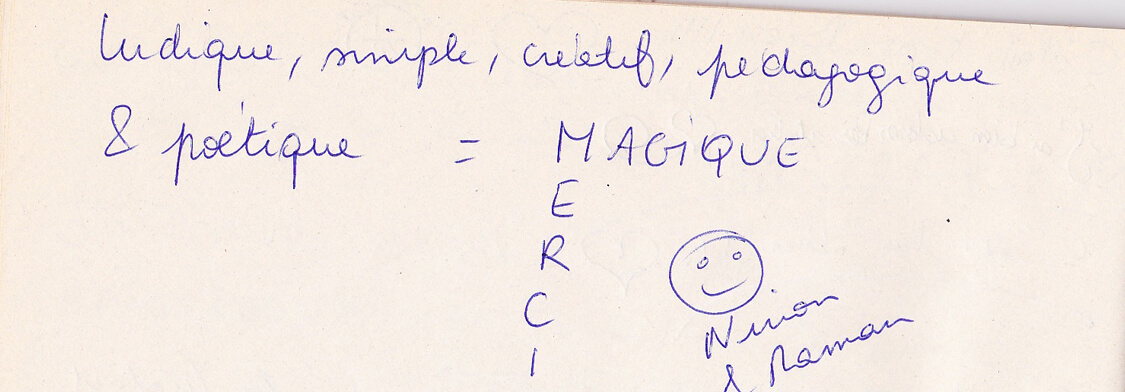 ludique, simple, créatif, pédagogique
& poétique = MAGIQUE
E
R
C
I
& Maman